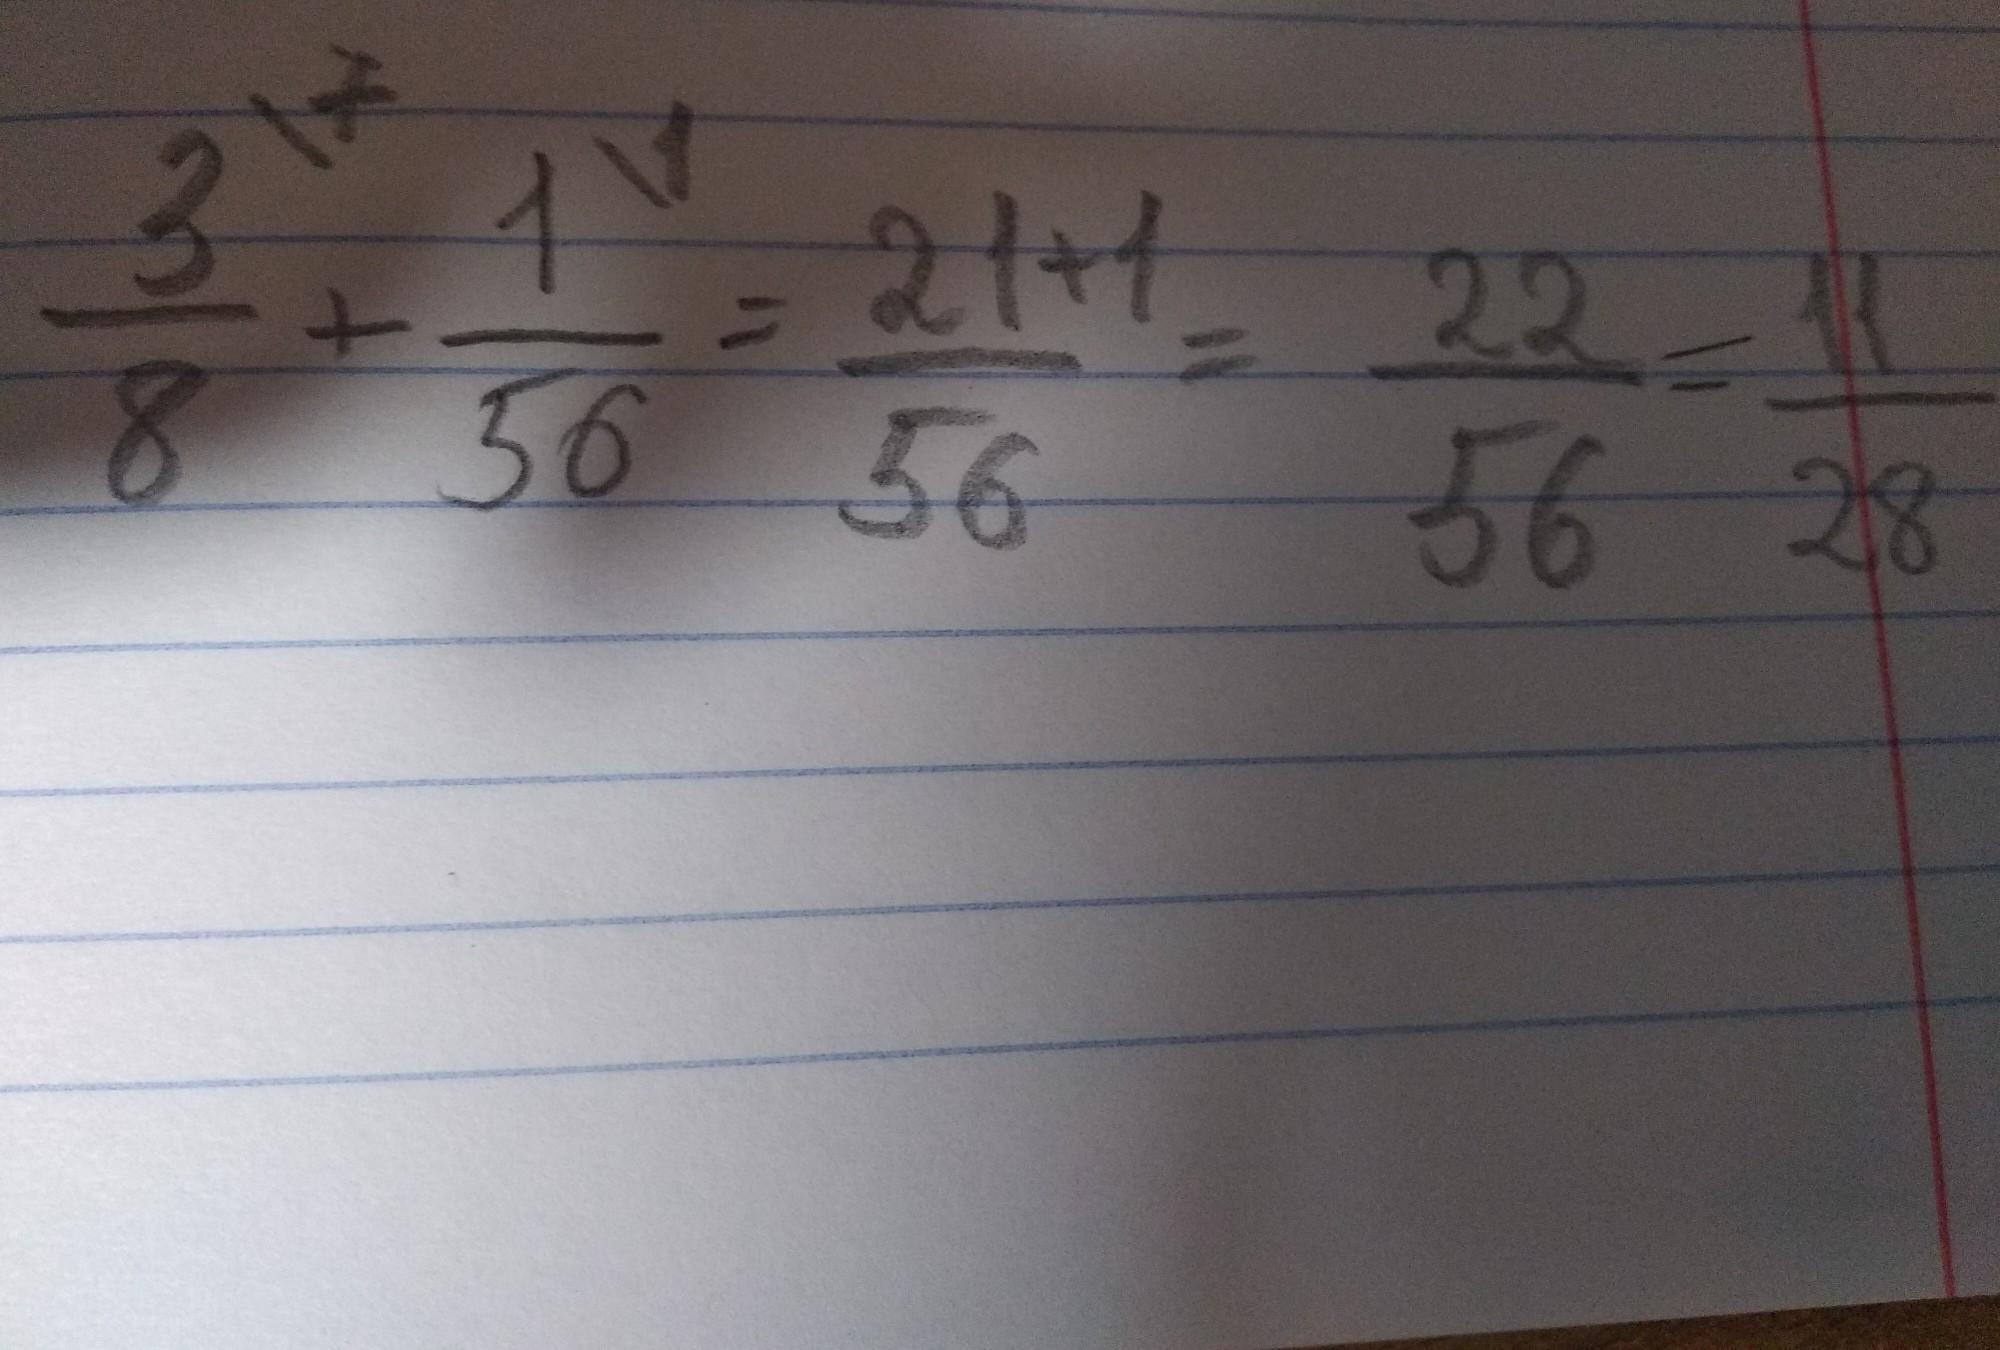 3\7/8 + 1\1/56 = 21+1/56 = 22/56 = 11/28